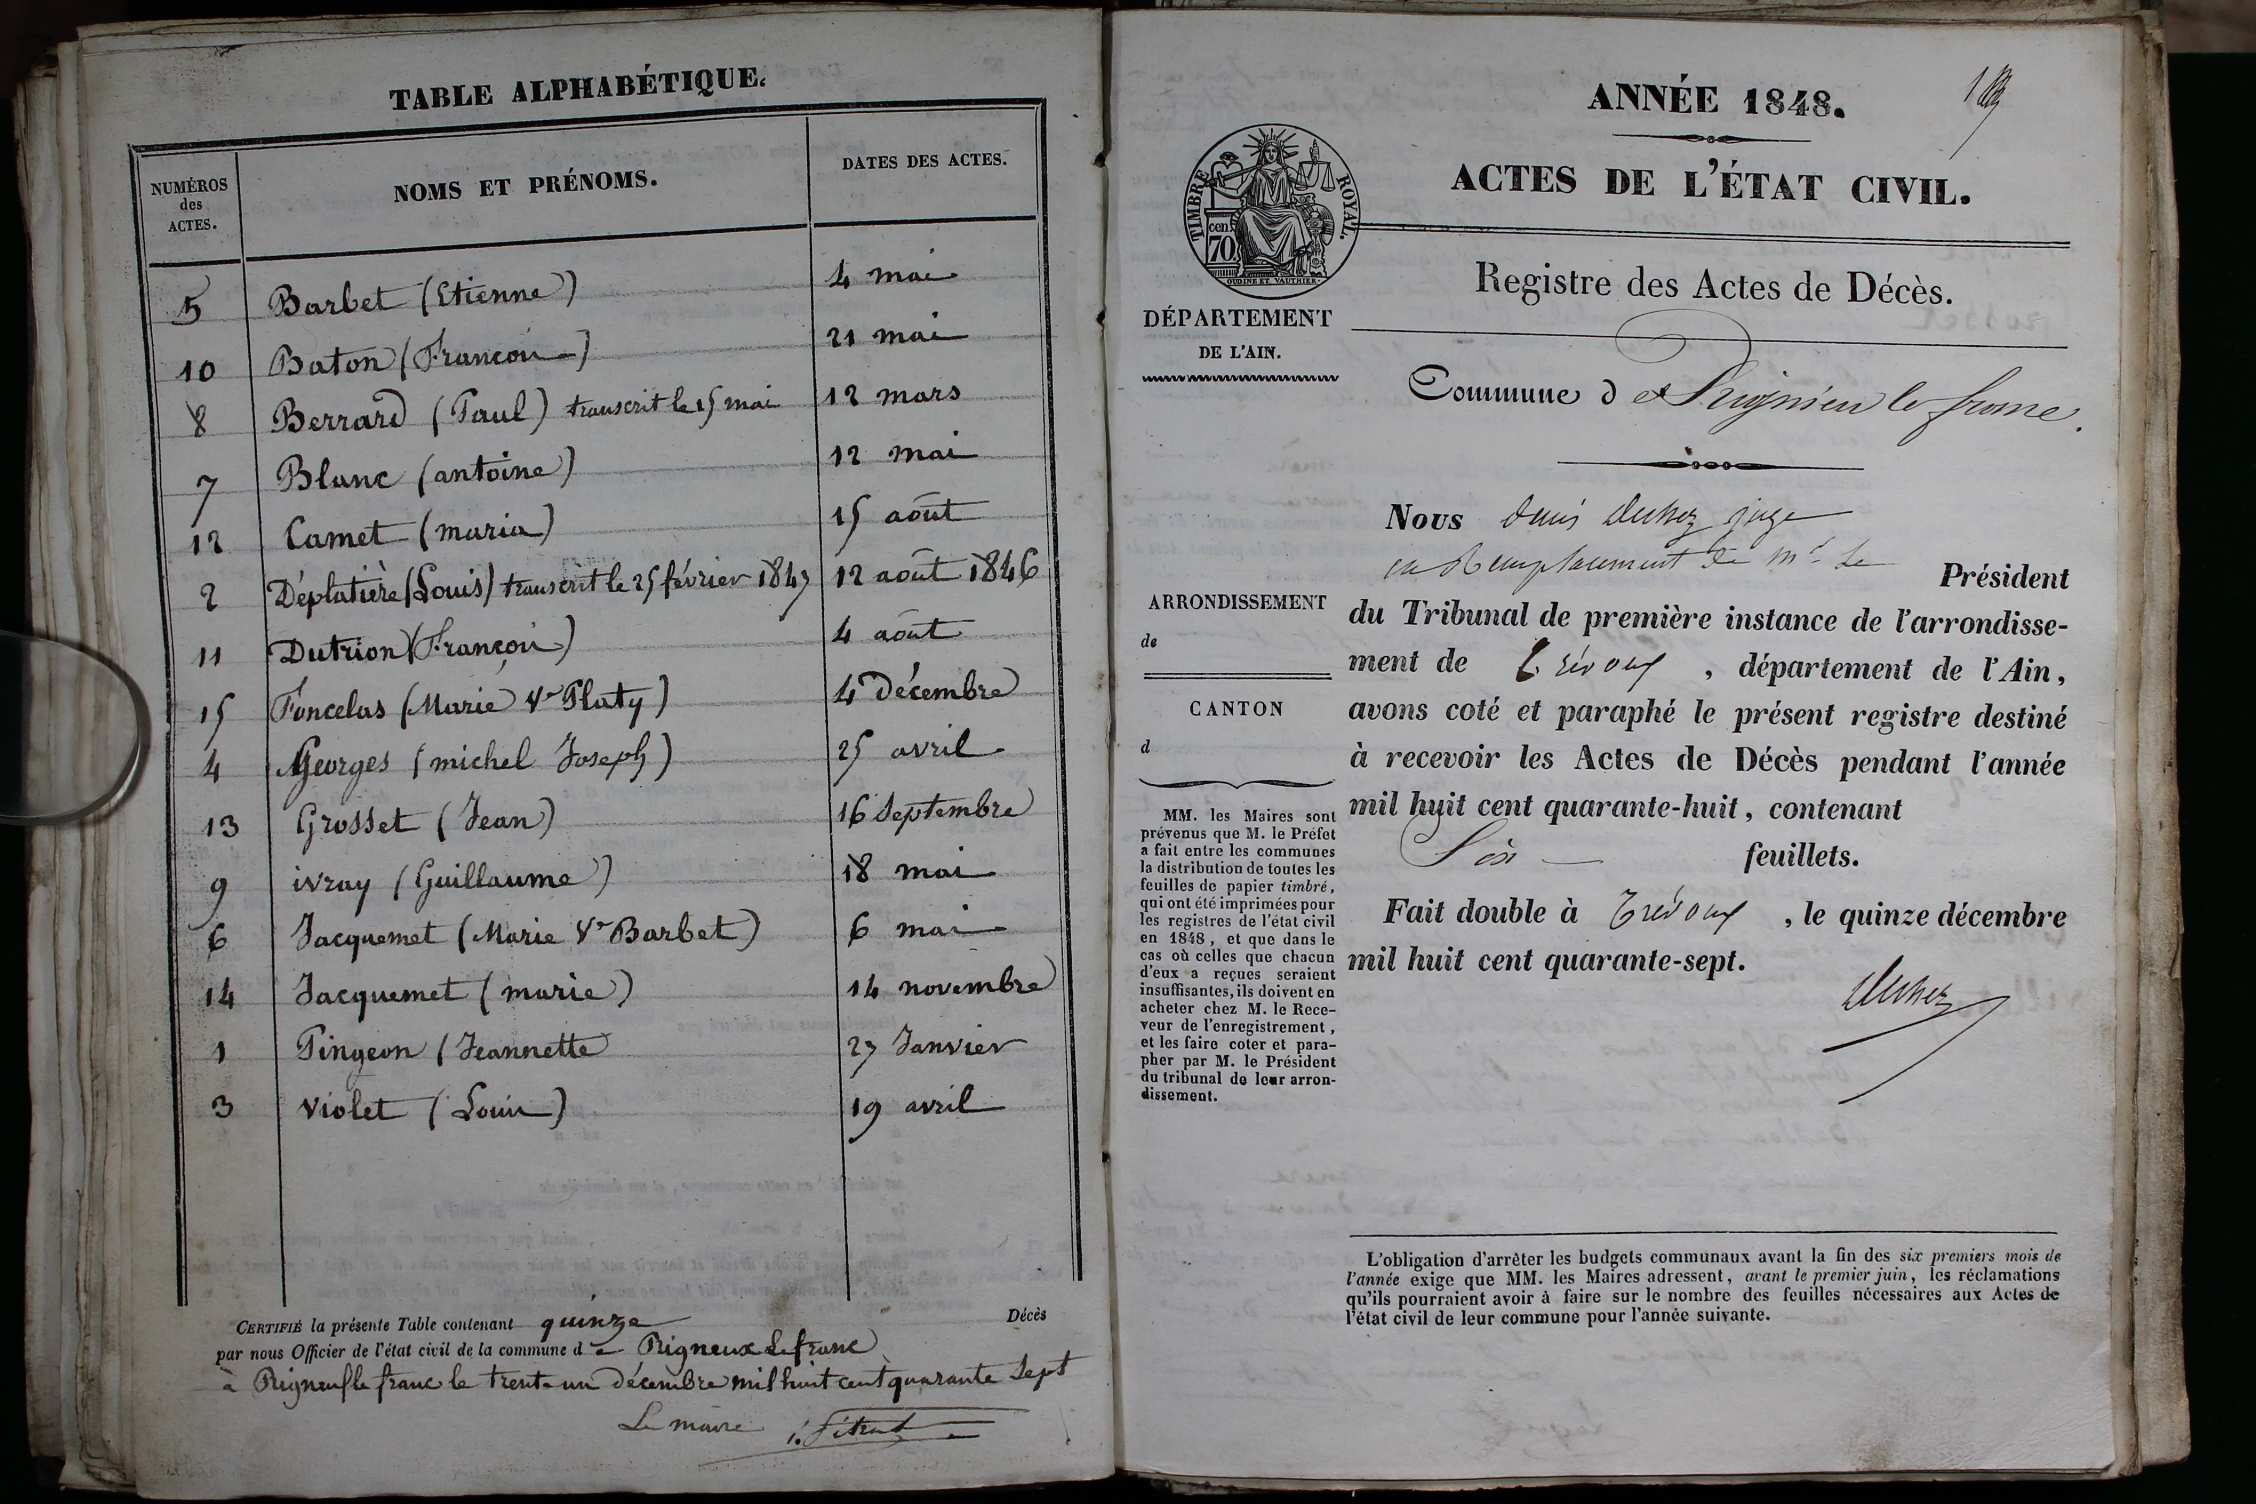 TABLE ALPHABÉTIQUE.
NUMÉROS des ACTES. NOMS ET PRÉNOMS. DATES DES ACTES.
5 Barbet (Etienne) 4 mai
10 Baton (François) 21 mai
8 Berrard (Paul) transcrit le 15 mai 12 mars
7 Blanc (antoine) 12 mai
12 Camet (maria) 15 août
2 Déplatière (Louis) transcrit le 25 février 1847 12 août 1846
11 Dutrion (François) 4 août
15 Foncelas (Marie Ve Platy) 4 Décembre
4 Georges (michel Joseph) 25 avril
13 Grosset (Jean) 16 Septembre
9 ivray (Guillaume) 18 mai
6 Jacquemet (Marie Ve Barbet) 6 mai
14 Jacquemet (marie) 14 novembre
1 Pingeon (Jeannette 27 Janvier
3 Violet (Louis) 19 avril
CERTIFIÉ la présente Table contenant quinze Décès
par nous Officier de l'état civil de la commune de Rigneux le franc
à Rigneux le franc le trente un décembre mil huit cent quarante Sept
Le maire
ANNÉE 1848.
ACTES DE L'ÉTAT CIVIL.
TIMBRE ROYAL.
cen. 70.
OUDINE ET VAUTHIER.
Registre des Actes de Décès.
DÉPARTEMENT
DE L'AIN.
Commune de Rignieu le franc.
Nous Denis Duchez juge
en Remplacement de Mr. le Président
du Tribunal de première instance de l'arrondisse-
ment de Trévoux, département de l'Ain,
avons coté et paraphé le présent registre destiné
à recevoir les Actes de Décès pendant l'année
mil huit cent quarante-huit, contenant
Six feuillets.
Fait double à Trévoux, le quinze décembre
mil huit cent quarante-sept.
Duchez
ARRONDISSEMENT
de
CANTON
d
MM. les Maires sont
prévenus que M. le Préfet
a fait entre les communes
la distribution de toutes les
feuilles de papier timbré,
qui ont été imprimées pour
les registres de l'état civil
en 1848, et que dans le
cas où celles que chacun
d'eux a reçues seraient
insuffisantes, ils doivent en
acheter chez M. le Rece-
veur de l'enregistrement,
et les faire coter et para-
pher par M. le Président
du tribunal de leur arron-
dissement.
L'obligation d'arrêter les budgets communaux avant la fin des six premiers mois de
l'année exige que MM. les Maires adressent, avant le premier juin, les réclamations
qu'ils pourraient avoir à faire sur le nombre des feuilles nécessaires aux Actes de
l'état civil de leur commune pour l'année suivante.